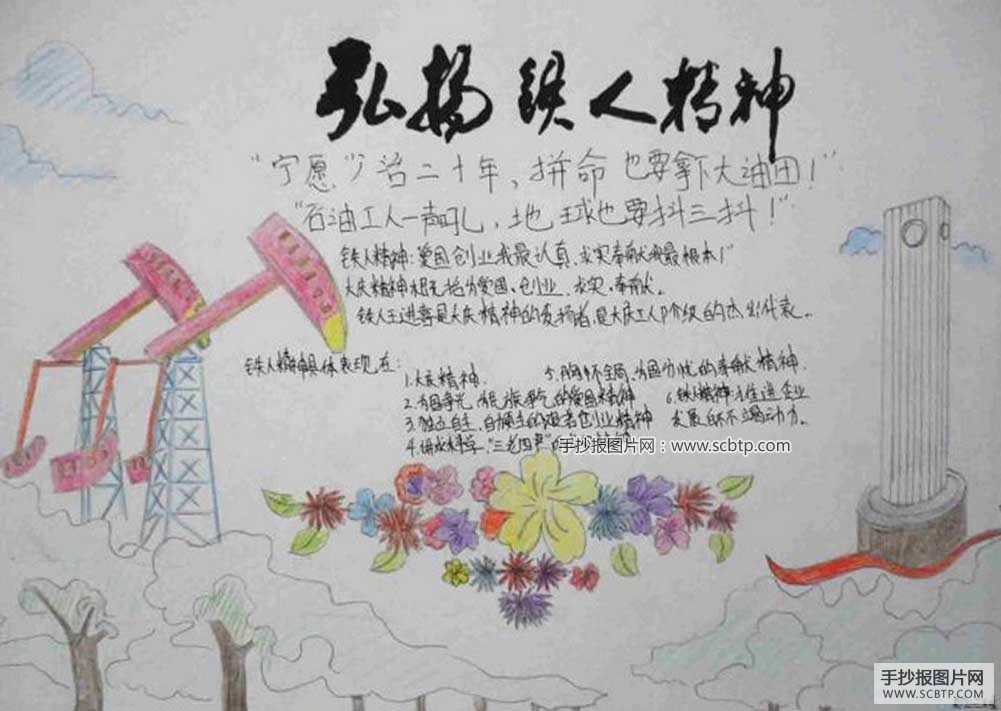 弘扬铁人精神
"宁愿少活二十年，拼命也要拿下大油田！"
"石油工人一声吼，地球也要抖三抖！"
铁人精神：爱国创业我最认真，求实奉献我最根本！"
大庆精神 爱国、创业、求实、奉献。
铁人王进喜是大庆精神的 者，是大庆工人阶级的杰出代表。
铁人精神具体表现在：
1.大庆精神
2.为国争光、为民族争气的爱国精神
3.独立自主、自 的艰苦创业精神
4.讲求科学、"三老四严"的
5.胸怀全局、为国分忧的奉献精神
6.铁人精神 企业
发展的不竭动力。
手抄报图片网：www.scbtp.com
手抄报图片网
WWW.SCBTP.COM